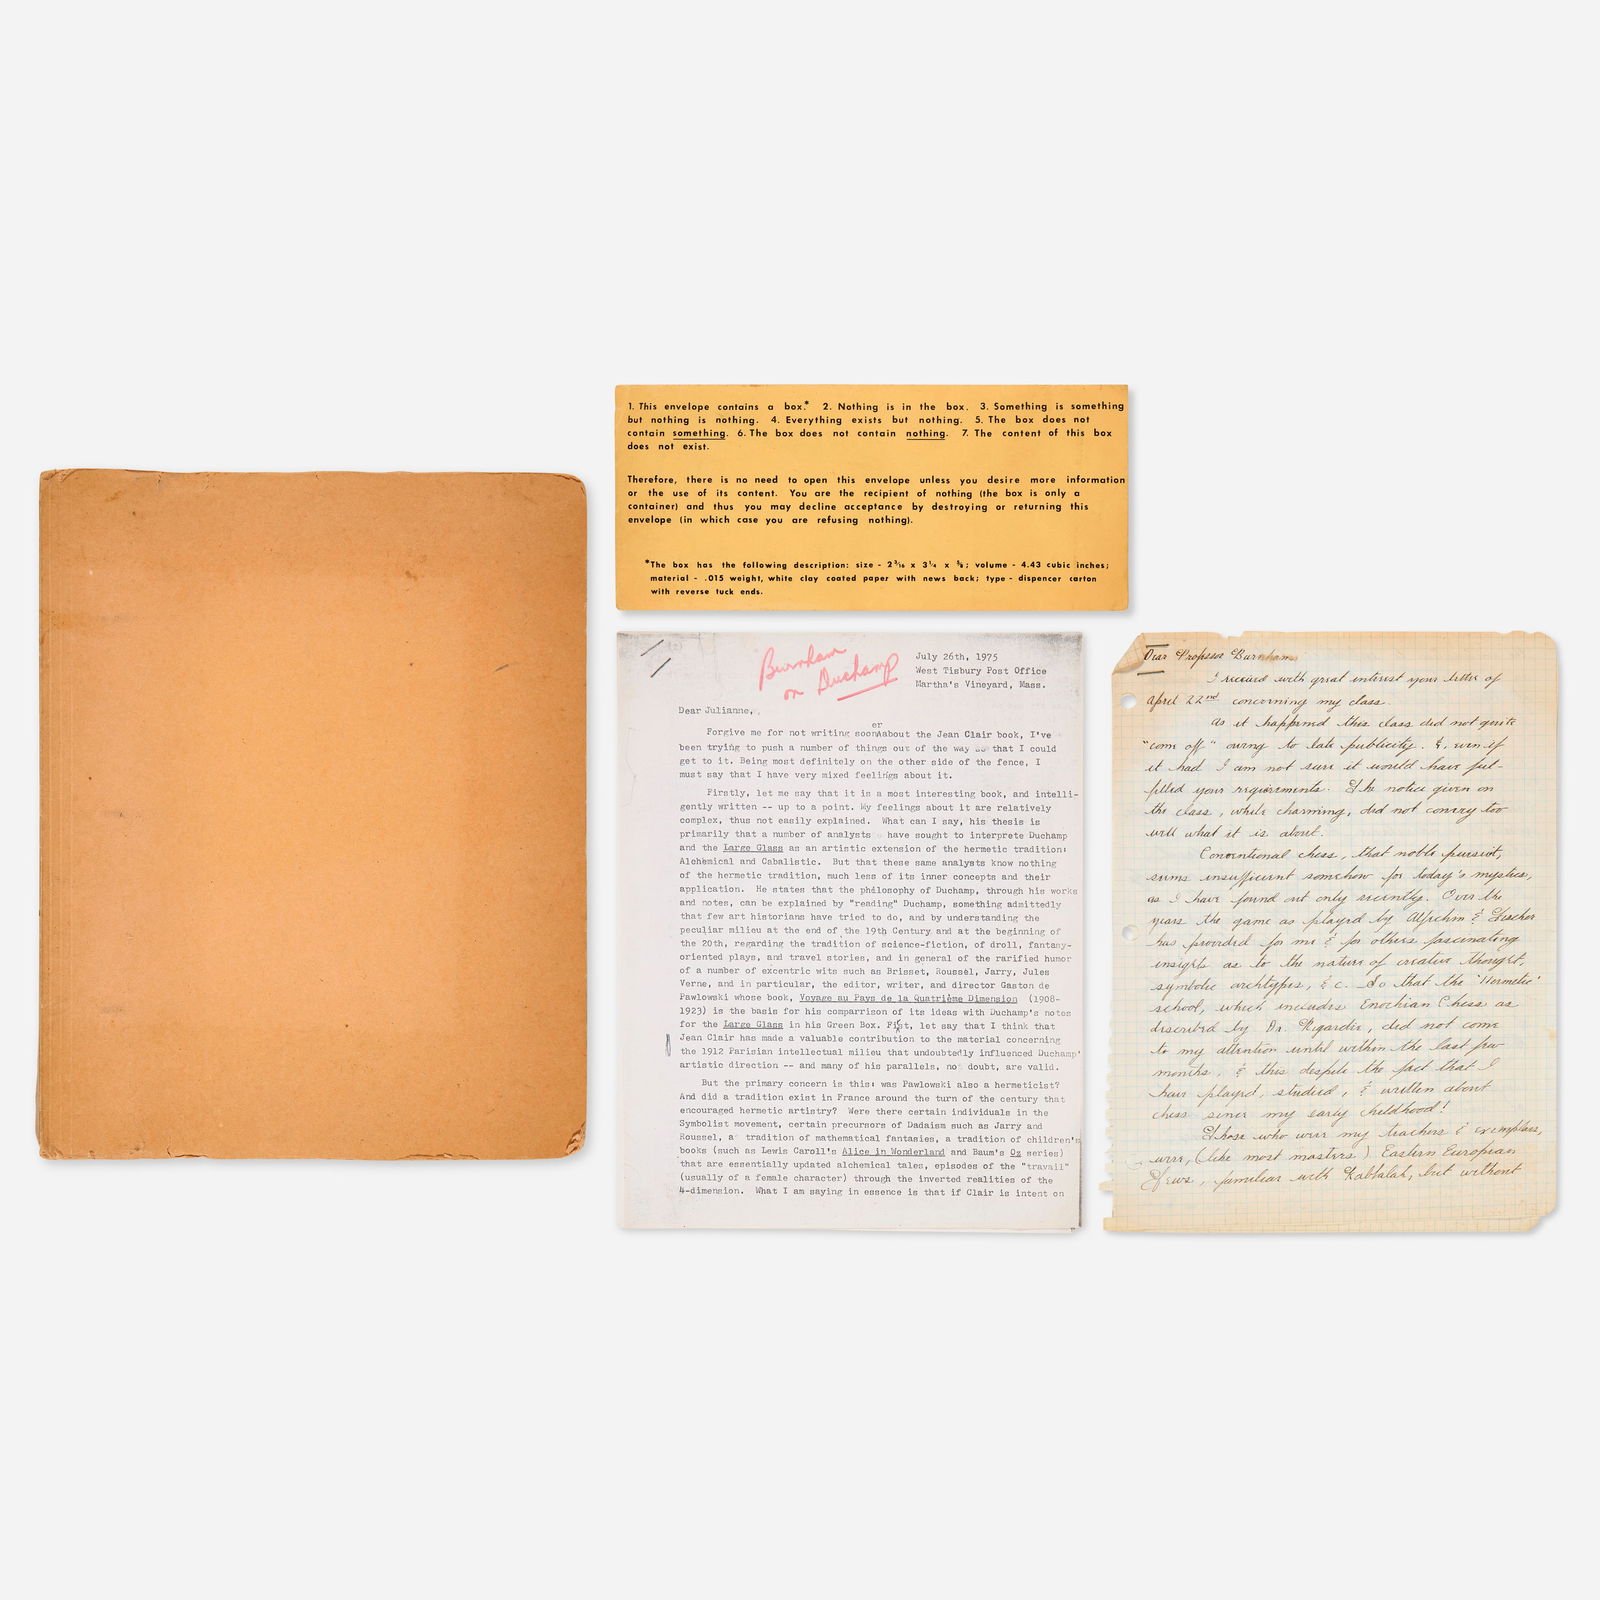 1. This envelope contains a box.* 2. Nothing is in the box. 3. Something is something
but nothing is nothing. 4. Everything exists but nothing. 5. The box does not
contain something. 6. The box does not contain nothing. 7. The content of this box
does not exist.
Therefore, there is no need to open this envelope unless you desire more information
or the use of its content. You are the recipient of nothing (the box is only a
container) and thus you may decline acceptance by destroying or returning this
envelope (in which case you are refusing nothing).
*The box has the following description: size - 2 3/16 x 3 1/4 x 5/8; volume - 4.43 cubic inches;
material - .015 weight, white clay coated paper with news back; type - dispencer carton
with reverse tuck ends.
Burnham
on Duchamp
July 26th, 1975
West Tisbury Post Office
Martha's Vineyard, Mass.
Dear Julianne,
er
Forgive me for not writing soon about the Jean Clair book, I've
been trying to push a number of things out of the way so that I could
get to it. Being most definitely on the other side of the fence, I
must say that I have very mixed feelings about it.
Firstly, let me say that it is a most interesting book, and intelli-
gently written -- up to a point. My feelings about it are relatively
complex, thus not easily explained. What can I say, his thesis is
primarily that a number of analysts have sought to interprete Duchamp
and the Large Glass as an artistic extension of the hermetic tradition:
Alchemical and Cabalistic. But that these same analysts know nothing
of the hermetic tradition, much less of its inner concepts and their
application. He states that the philosophy of Duchamp, through his works
and notes, can be explained by "reading" Duchamp, something admittedly
that few art historians have tried to do, and by understanding the
peculiar milieu at the end of the 19th Century and at the beginning of
the 20th, regarding the tradition of science-fiction, of droll, fantasy-
oriented plays, and travel stories, and in general of the rarified humor
of a number of excentric wits such as Brisset, Roussel, Jarry, Jules
Verne, and in particular, the editor, writer, and director Gaston de
Pawlowski whose book, Voyage au Pays de la Quatrième Dimension (1908-
1923) is the basis for his comparrison of its ideas with Duchamp's notes
for the Large Glass in his Green Box. Fist, let say that I think that
Jean Clair has made a valuable contribution to the material concerning
the 1912 Parisian intellectual milieu that undoubtedly influenced Duchamp'
artistic direction -- and many of his parallels, no doubt, are valid.
But the primary concern is this: was Pawlowski also a hermeticist?
And did a tradition exist in France around the turn of the century that
encouraged hermetic artistry? Were there certain individuals in the
Symbolist movement, certain precursors of Dadaism such as Jarry and
Roussel, a tradition of mathematical fantasies, a tradition of children's
books (such as Lewis Caroll's Alice in Wonderland and Baum's Oz series)
that are essentially updated alchemical tales, episodes of the "travail"
(usually of a female character) through the inverted realities of the
4-dimension. What I am saying in essence is that if Clair is intent on
Dear Professor Burnham
I received with great interest your letter of
April 22nd concerning my class.
As it happened this class did not quite
"come off" owing to late publicity. &, even if
it had I am not sure it would have ful-
filled your requirements. The notice given on
the class, while charming, did not convey too
well what it is about.
Conventional chess, that noble pursuit,
seems insufficient somehow for today's mystics,
as I have found out only recently. Over the
years the game as played by Alechin & Fischer
has provided for me & for others fascinating
insights as to the nature of creative thought,
symbolic archtypes, & c. So that the 'Hermetic'
school, which includes Enochian Chess as
described by Dr. Regardie, did not come
to my attention until within the last few
months, & this despite the fact that I
have played, studied, & written about
chess since my early childhood!
Those who were my teachers & exemplars,
were, (like most masters) Eastern European
Jews, familiar with Kabbalah, but without